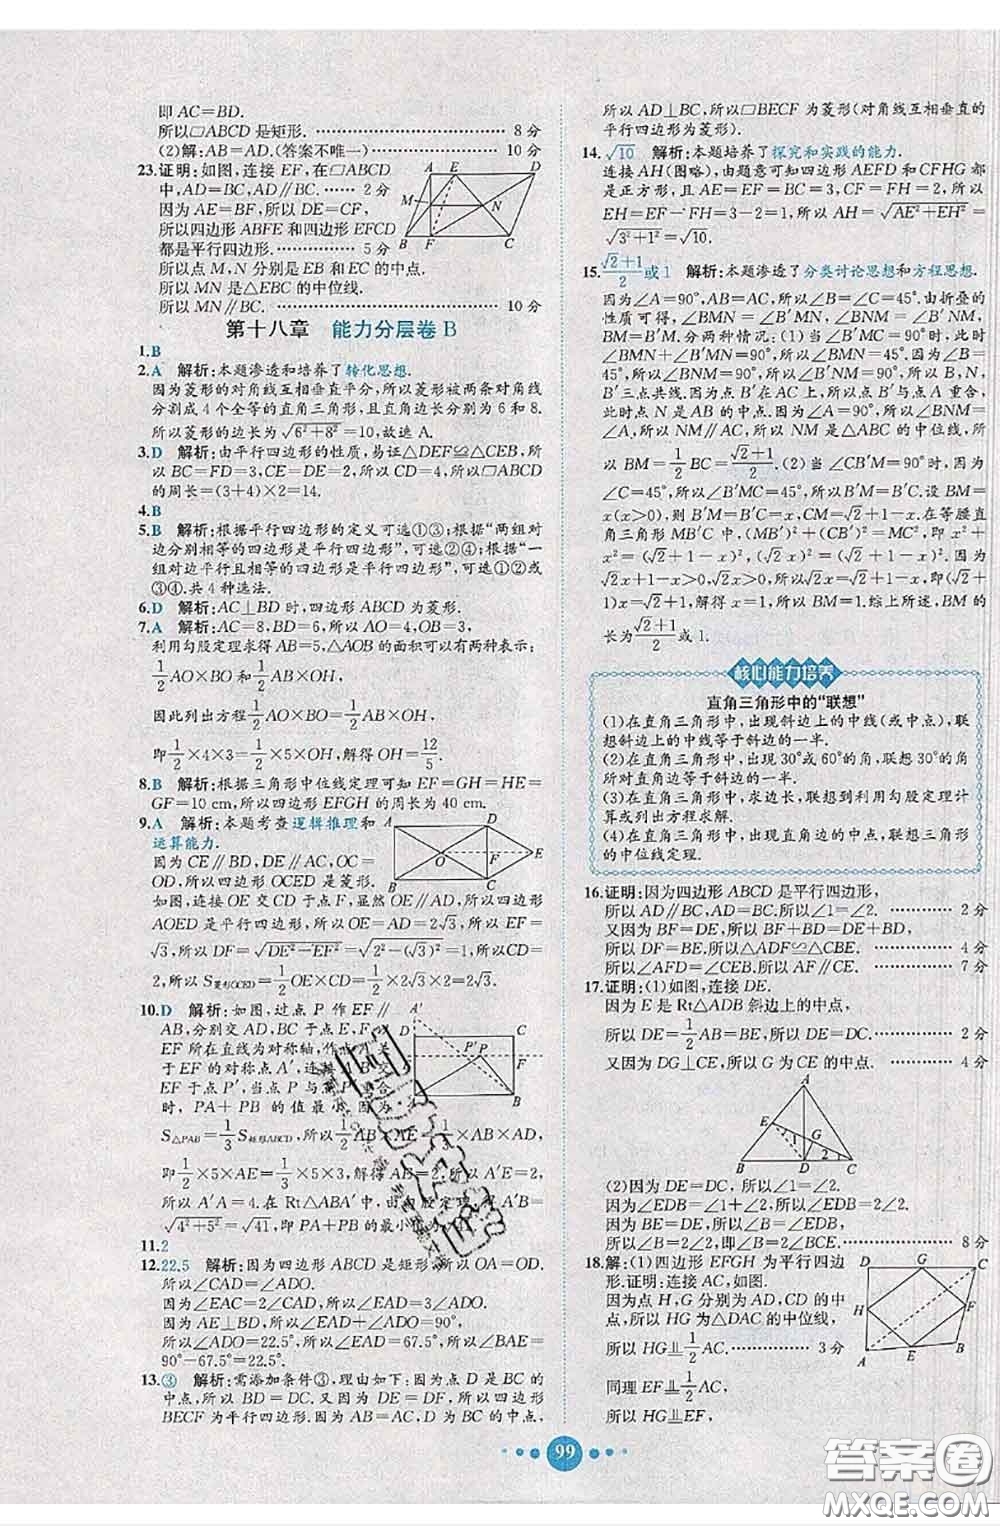 即 AC=BD.
所以□ABCD 是矩形. ⋯⋯⋯⋯⋯⋯⋯⋯ 8 分
(2)解:AB=AD.(答案不唯一) ⋯⋯⋯⋯⋯ 10 分
23.证明:如图,连接 EF,在□ABCD
中,AD=BC,AD∥BC. ⋯⋯ 2 分
因为 AE=BF,所以 DE=CF,
所以四边形 ABFE 和四边形 EFCD
都是平行四边形. ⋯⋯⋯⋯ 5 分
所以点 M,N 分别是 EB 和 EC 的中点.
所以 MN 是△EBC 的中位线.
所以 MN∥BC. ⋯⋯⋯⋯⋯⋯⋯⋯⋯ 10 分
A E D
M N
B F C
第十八章 能力分层卷 B
1.B
2.A 解析:本题渗透和培养了转化思想.
因为菱形的对角线互相垂直平分,所以菱形被两条对角线
分割成 4 个全等的直角三角形,且直角边分别为 6 和 8.
所以菱形的边长为√(6²+8²)=10,故选 A.
3.D 解析:由平行四边形的性质,易证△DEF≌△CEB,所
以 BC=FD=3,CE=DE=2,所以 CD=4,所以□ABCD
的周长=(3+4)×2=14.
4.B
5.B 解析:根据平行四边形的定义可选①③;根据“两组对
边分别相等的四边形是平行四边形”,可选②④;根据“一
组对边平行且相等的四边形是平行四边形”,可选①②或
③④.共 4 种选法.
6.D 解析:AC⊥BD 时,四边形 ABCD 为菱形.
7.A 解析:AC=8,BD=6,所以 AO=4,OB=3,
利用勾股定理求得 AB=5,△AOB 的面积可以有两种表示,
1/2 AO×BO 和 1/2 AB×OH,
因此列出方程 1/2 AO×BO=1/2 AB×OH,
即 1/2×4×3=1/2×5×OH,解得 OH=12/5.
8.B 解析:根据三角形中位线定理可知 EF=GH=HE=
GF=10 cm,所以四边形 EFGH 的周长为 40 cm.
9.A 解析:本题考查逻辑推理和
运算能力.
因为 CE∥BD,DE∥AC,OC=
OD,所以四边形 OCED 是菱形.
如图,连接 OE 交 CD 于点 F,显然 OE∥AD,所以四边形
AOED 是平行四边形,所以 OE=AD=2√3,所以 EF=
√3,所以 DF=√(DE²−EF²)=√(2²−(√3)²)=1,所以CD=
2,所以 S菱形OCED=1/2 OE×CD=1/2×2√3×2=2√3.
A D
O F E
B C
10.D 解析:如图,过点 P 作 EF∥
AB,分别交 AD,BC 于点 E,F,
A′
D C
P′ P
E F
A B
S△PAB=1/3 S矩形ABCD,所以
√(4²+5²)=√41,即 PA+PB 的最小
11.2
12.22.5 解析:因为四边形 ABCD 是矩形,所以 OA=OD.
所以∠CAD=∠ADO.
因为∠EAC=2∠CAD,所以∠EAO=2∠ADO.
因为 AE⊥BD,所以∠EAD+∠ADO=90°,
所以∠ADO=22.5°,所以∠EAD=67.5°,所以∠BAE=
90°−67.5°=22.5°.
13.③ 解析:需添加条件③,理由如下:因为点 D 是 BC 的
中点,所以 BD=DC.又因为 DE=DF,所以四边形
BECF 为平行四边形.因为 AB=AC,D 为 BC 的中点,
所以 AD⊥BC,所以□BECF 为菱形(对角线互相垂直的
平行四边形为菱形).
14.√10 解析:本题培养了探究和实践的能力.
连接 AH(图略),由题意可知四边形 AEFD 和 CFHG 都
是正方形,所以 AE=EF=BC=3,CF=FH=2,所以
EH=EF−FH=3−2=1,所以 AH=√(AE²+EH²)=
√(3²+1²)=√10.
15.(√2+1)/2 或 1 解析:本题渗透了分类讨论思想和方程思想.
因为∠A=90°,AB=AC,所以∠B=∠C=45°.由折叠的
性质可知,∠BMN=∠B′MN,∠B=∠NB′M=45°,
BM=B′M.分两种情况:(1)当∠B′MC=90°时,因为
∠BMN=∠B′MN,所以∠BNM=∠B′NM,所以 B,N,
B′三点共线.因为点 B′在 AC 上,所以点 B′与点 A 重合,
此时点 N 是 AB 的中点.因为∠A=90°,所以∠BNM=
∠A,所以 NM∥AC,所以 MN 是△ABC 的中位线,所
以 BM=1/2 BC=(√2+1)/2.(2)当∠CB′M=90°时,因为
∠C=45°,所以∠B′MC=∠C=45°,所以 B′M=B′C.设 BM=
x(x>0),则 B′M=B′C=x,CM=√2+1−x.在等腰直
角三角形 MB′C 中,(MB′)²+(CB′)²=MC²,即
x²+x²=(√2+1−x)²,即(√2x)²=(√2+1−x)²,所以
√2x=√2+1−x,所以√2x+x=√2+1,即(√2+
1)x=√2+1,解得 x=1,所以 BM=1.综上所述,BM 的
长为(√2+1)/2 或 1.
核心能力培养
直角三角形中的“联想”
(1)在直角三角形中,出现斜边上的中线(或中点),联
想斜边上的中线等于斜边的一半.
(2)在直角三角形中,出现30°或60°的角,联想30°的角
所对直角边等于斜边的一半.
(3)在直角三角形中,求边长,联想到利用勾股定理计
算或列出方程求解.
(4)在直角三角形中,出现直角边的中点,联想三角形
的中位线定理.
16.证明:因为四边形 ABCD 是平行四边形,
所以 AD∥BC,AD=BC,所以∠1=∠2. ⋯⋯⋯ 2 分
又因为 BF=DE,所以 BF+BD=DE+BD,
所以 DF=BE.所以△ADF≌△CBE. ⋯⋯⋯⋯ 4 分
所以∠AFD=∠CEB.所以 AF∥CE. ⋯⋯⋯⋯ 7 分
17.证明:(1)如图,连接 DE.
因为 E 是 Rt△ADB 斜边上的中点,
所以 DE=1/2 AB=BE,所以 DE=DC. ⋯⋯⋯⋯ 2 分
又因为 DG⊥CE,所以 G 为 CE 的中点. ⋯⋯⋯ 4 分
A
E G
1 2
B D C
(2)因为 DE=DC,所以∠1=∠2,
所以∠EDB=∠1+∠2,所以∠EDB=2∠2.
因为 BE=DE,所以∠B=∠EDB,
所以∠B=2∠2,即∠B=2∠BCE. ⋯⋯⋯⋯⋯ 8 分
18.解:(1)四边形 EFGH 为平行四边
形.证明:连接 AC,如图.
因为点 H,G 分别为 AD,CD 的中
点,所以 HG 为△DAC 的中位线,
所以 HG∥=1/2 AC. ⋯⋯⋯⋯ 3 分
同理 EF∥=1/2 AC,
所以 HG∥=EF,
D G C
H F
A E B
99
答案圈
MXQE.COM